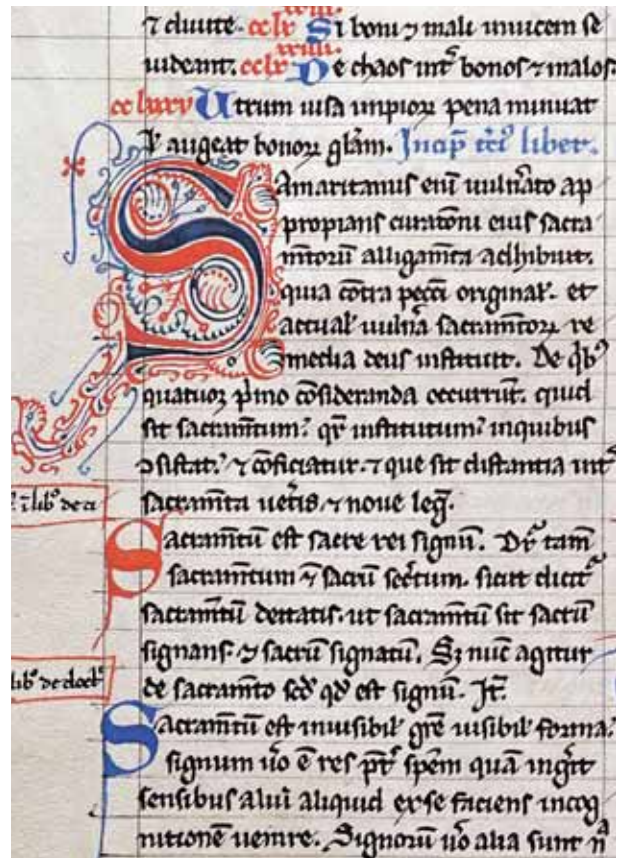 ⁊ diuite. cclxxviii. Si boni ⁊ mali inuicem se
uideant. cclxxviiii. De chaos int̄ bonos ⁊ malos.
cclxxxv Utrum uisa impioꝝ pena minuat
ł augeat bonoꝝ glām. Incip̄ liber.
Samaritanus eni᷒ uulnāto ap
propians curatōni eius sacra
m̄torū alligam̄ta adhibuit.
quia cōtra pecc̄i originał. et
actuał uulnā sacram̄toꝝ re
media deus instituit. De qͥbꝰ
quatuor p̄imo cōsideranda occurrūt. quid
sit sacram̄tum? qr̄ institutum? inquibus
ↄsistat? ⁊ cōficiatur. ⁊ que sit distantia int̄
sacram̄ta uet̄is ⁊ noue leḡ.
lib᷒ de ci
Sacram̄tū est sacre rei signū. Dr̄ tam̄
sacram̄tum ⁊̄ sacrū sec̄tum. sicut dicit᷑
sacram̄tū deitatis. ut sacram̄tū sit sacrū
signans. ⁊ sacrū signatū. Sꝫ nūc agitur
de sacram̄to scd̄ qd̄ est signū. It̄.
lib᷒ de doct᷒
Sacram̄tū est inuisibił gr̄e uisibił forma.
signum u̇o ē res p̄t̄ sp̄em quā inḡit
sensibus aliud aliquid ex se faciens in cog
nitionē uenire. Signorū u̇o alia sunt nͣ